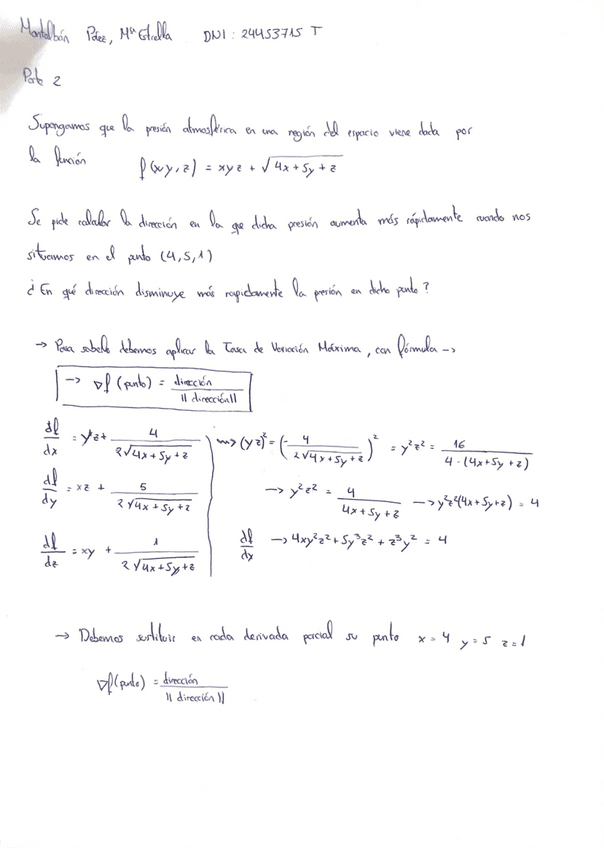 Montalbán Pérez, Mª Estrella DNI: 24453715 T
Parte 2
Supongamos que la presión atmosférica en una región del espacio viene dada por
la función f(xy,z) = xyz + √4x+5y+z
Se pide calcular la dirección en la que dicha presión aumenta más rápidamente cuando nos
situamos en el punto (4,5,1)
¿En qué dirección disminuye más rapidamente la presión en dicho punto?
→ Para saberlo debemos aplicar la Tasa de Variación Máxima, con fórmula →
→ ∇f (punto) = dirección / || dirección ||
df/dx = yz + 4 / 2√4x+5y+z ⟿ (yz)² = (- 4 / 2√4x+5y+z)² = y²z² = 16 / 4·(4x+5y+z)
df/dy = xz + 5 / 2√4x+5y+z → y²z² = 4 / 4x+5y+z → y²z²(4x+5y+z) = 4
df/dz = xy + 1 / 2√4x+5y+z df/dx → 4xy²z² + 5y³z² + z³y² = 4
→ Debemos sustituir en cada derivada parcial su punto x=4 y=5 z=1
∇f(punto) = dirección / || dirección ||